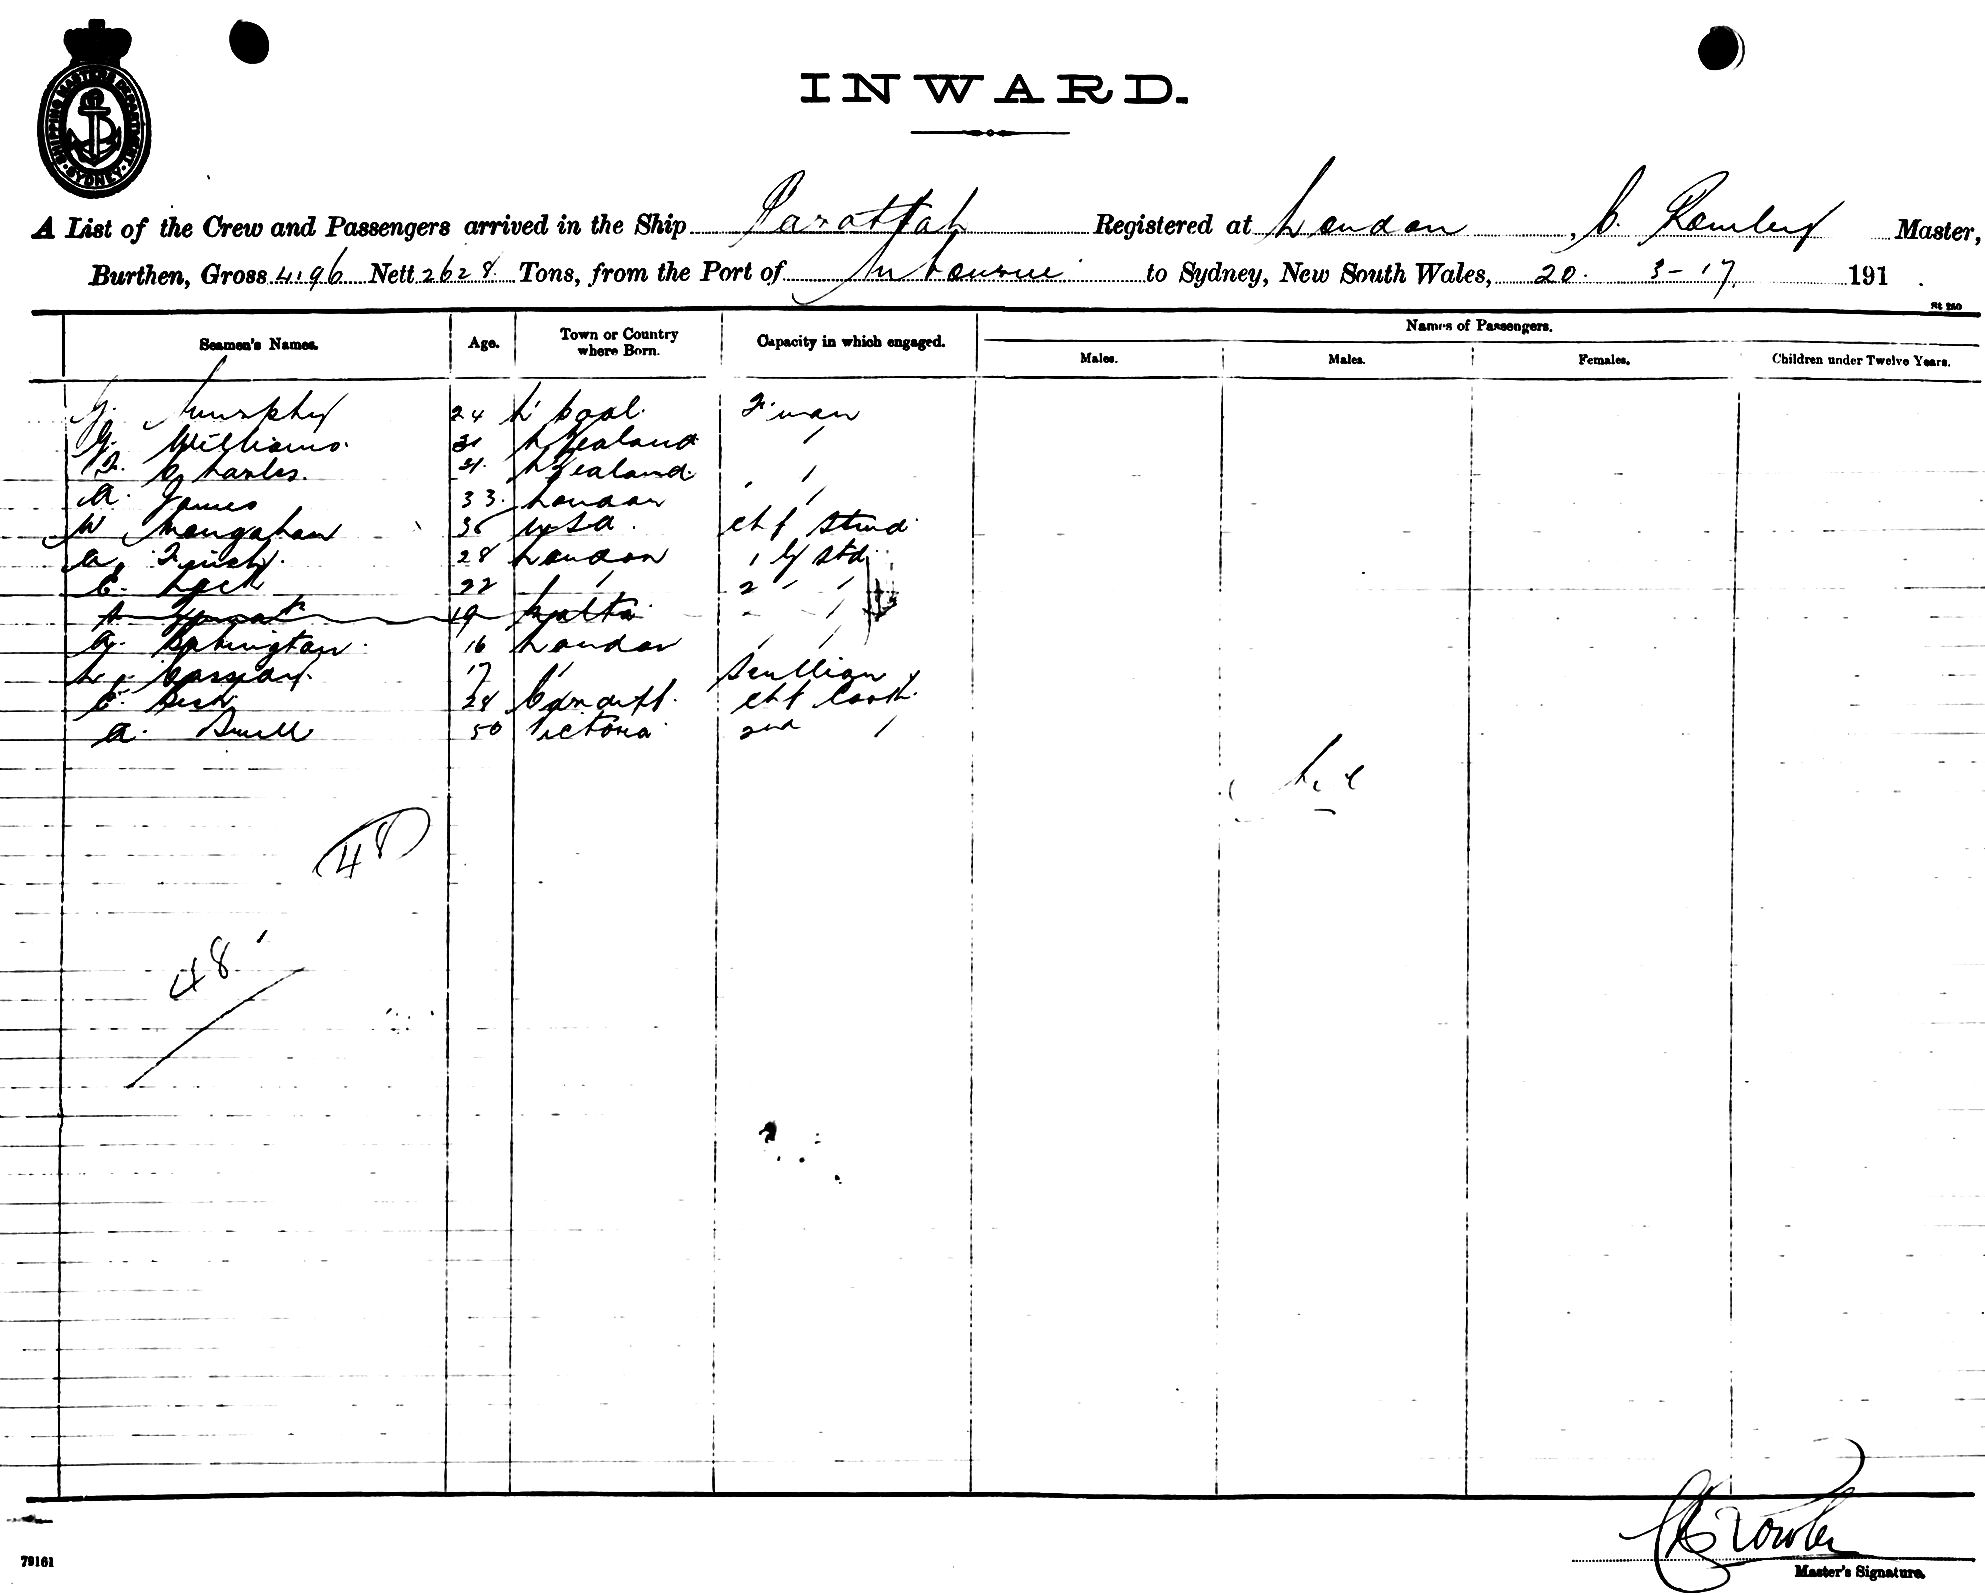 SHIPPING MASTERS DEPARTMENT SYDNEY
INWARD.
A List of the Crew and Passengers arrived in the Ship Parattah Registered at London C. Rowley Master,
Burthen, Gross 4196 Nett 2628 Tons, from the Port of Mbourne to Sydney, New South Wales, 20. 3-17. 191 .
St 250
Seamen's Names. Age. Town or Country where Born. Capacity in which engaged. Names of Passengers.
Males. Males. Females. Children under Twelve Years.
J. Murphy 24 L'pool. F'man
G. Williams. N Zealand "
F. Charles. 21. N Zealand. " "
A. James 33. London "
W Mongahan 35 USA. Chf Stwd
A. Finch. 28 London 1 " Std
C. Lock 22 " 2 " "
19 Malta " "
G. Babington. 16 London " "
L. 17 " Scullion
C. 28 Cardiff. Chf Cook.
A. 50 Victoria 2nd "
Nil
48
48
79161
Master's Signature.